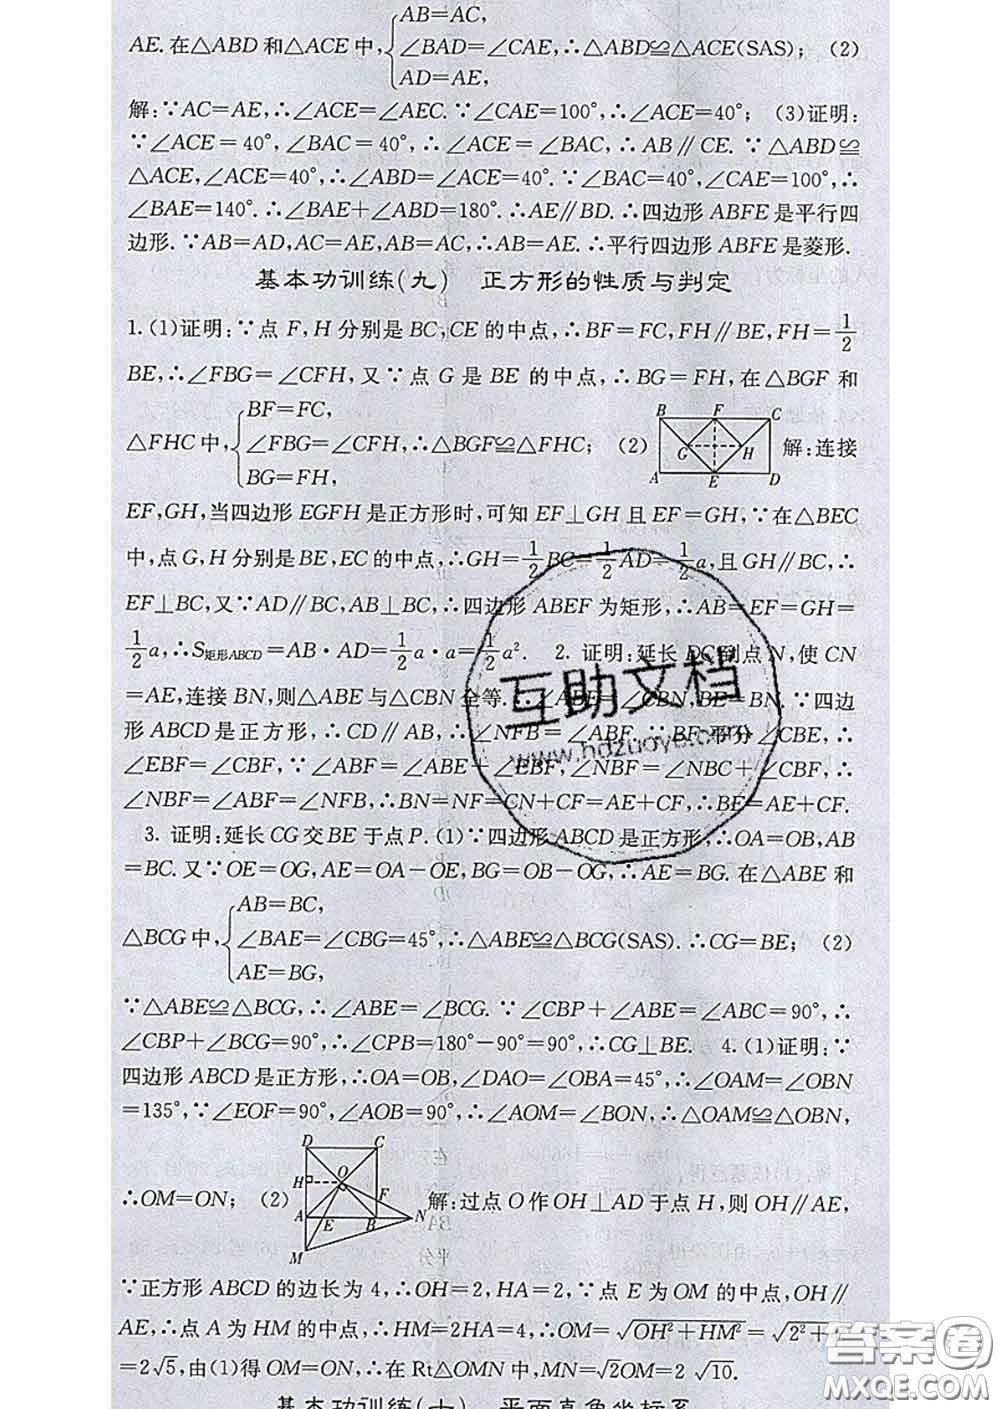 AB=AC,
AE.在△ABD和△ACE中,∠BAD=∠CAE,∴△ABD≌△ACE(SAS); (2)
AD=AE,
解:∵AC=AE,∴∠ACE=∠AEC.∵∠CAE=100°,∴∠ACE=40°; (3)证明:
∵∠ACE=40°,∠BAC=40°,∴∠ACE=∠BAC,∴AB∥CE.∵△ABD≌
△ACE,∠ACE=40°,∴∠ABD=∠ACE=40°.∵∠BAC=40°,∠CAE=100°,∴
∠BAE=140°.∴∠BAE+∠ABD=180°.∴AE∥BD.∴四边形ABFE是平行四
边形.∵AB=AD,AC=AE,AB=AC,∴AB=AE.∴平行四边形ABFE是菱形.
基本功训练(九) 正方形的性质与判定
1.(1)证明:∵点F,H分别是BC,CE的中点,∴BF=FC,FH∥BE,FH=1/2
BE,∴∠FBG=∠CFH,又∵点G是BE的中点,∴BG=FH,在△BGF和
BF=FC,
△FHC中,∠FBG=∠CFH,∴△BGF≌△FHC; (2) 解:连接
BG=FH,
B F C
G H
A E D
EF,GH,当四边形EGFH是正方形时,可知EF⊥GH且EF=GH,∵在△BEC
中,点G,H分别是BE,EC的中点,∴GH=1/2BC=1/2AD=1/2a,且GH∥BC,∴
EF⊥BC,又∵AD∥BC,AB⊥BC,∴四边形ABEF为矩形,∴AB=EF=GH=
1/2a,∴S矩形ABCD=AB·AD=1/2a·a=1/2a². 2.证明:延长DC到点N,使CN
=AE,连接BN,则△ABE与△CBN全等.∴∠ABE=∠CBN,BE=BN.∵四边
形ABCD是正方形,∴CD∥AB,∴∠NFB=∠ABF.∵BF平分∠CBE,∴
∠EBF=∠CBF,∵∠ABF=∠ABE+∠EBF,∠NBF=∠NBC+∠CBF,∴
∠NBF=∠ABF=∠NFB,∴BN=NF=CN+CF=AE+CF,∴BE=AE+CF.
3.证明:延长CG交BE于点P.(1)∵四边形ABCD是正方形,∴OA=OB,AB
=BC.又∵OE=OG,AE=OA-OE,BG=OB-OG,∴AE=BG.在△ABE和
AB=BC,
△BCG中,∠BAE=∠CBG=45°,∴△ABE≌△BCG(SAS).∴CG=BE; (2)
AE=BG,
∵△ABE≌△BCG,∴∠ABE=∠BCG.∵∠CBP+∠ABE=∠ABC=90°,∴
∠CBP+∠BCG=90°,∴∠CPB=180°-90°=90°,∴CG⊥BE. 4.(1)证明:∵
四边形ABCD是正方形,∴OA=OB,∠DAO=∠OBA=45°,∴∠OAM=∠OBN
=135°,∵∠EOF=90°,∠AOB=90°,∴∠AOM=∠BON,∴△OAM≌△OBN,
D C
H O
F
A E B N
M
∴OM=ON; (2) 解:过点O作OH⊥AD于点H,则OH∥AE,
∵正方形ABCD的边长为4,∴OH=2,HA=2,∵点E为OM的中点,OH∥
AE,∴点A为HM的中点,∴HM=2HA=4,∴OM=√(OH²+HM²)=√(2²+
=2√5,由(1)得OM=ON,∴在Rt△OMN中,MN=√2OM=2√10.
基本功训练(十) 平面直角坐标系
互助文档
www.hdzuoye.com
答案圈
MXQE.COM